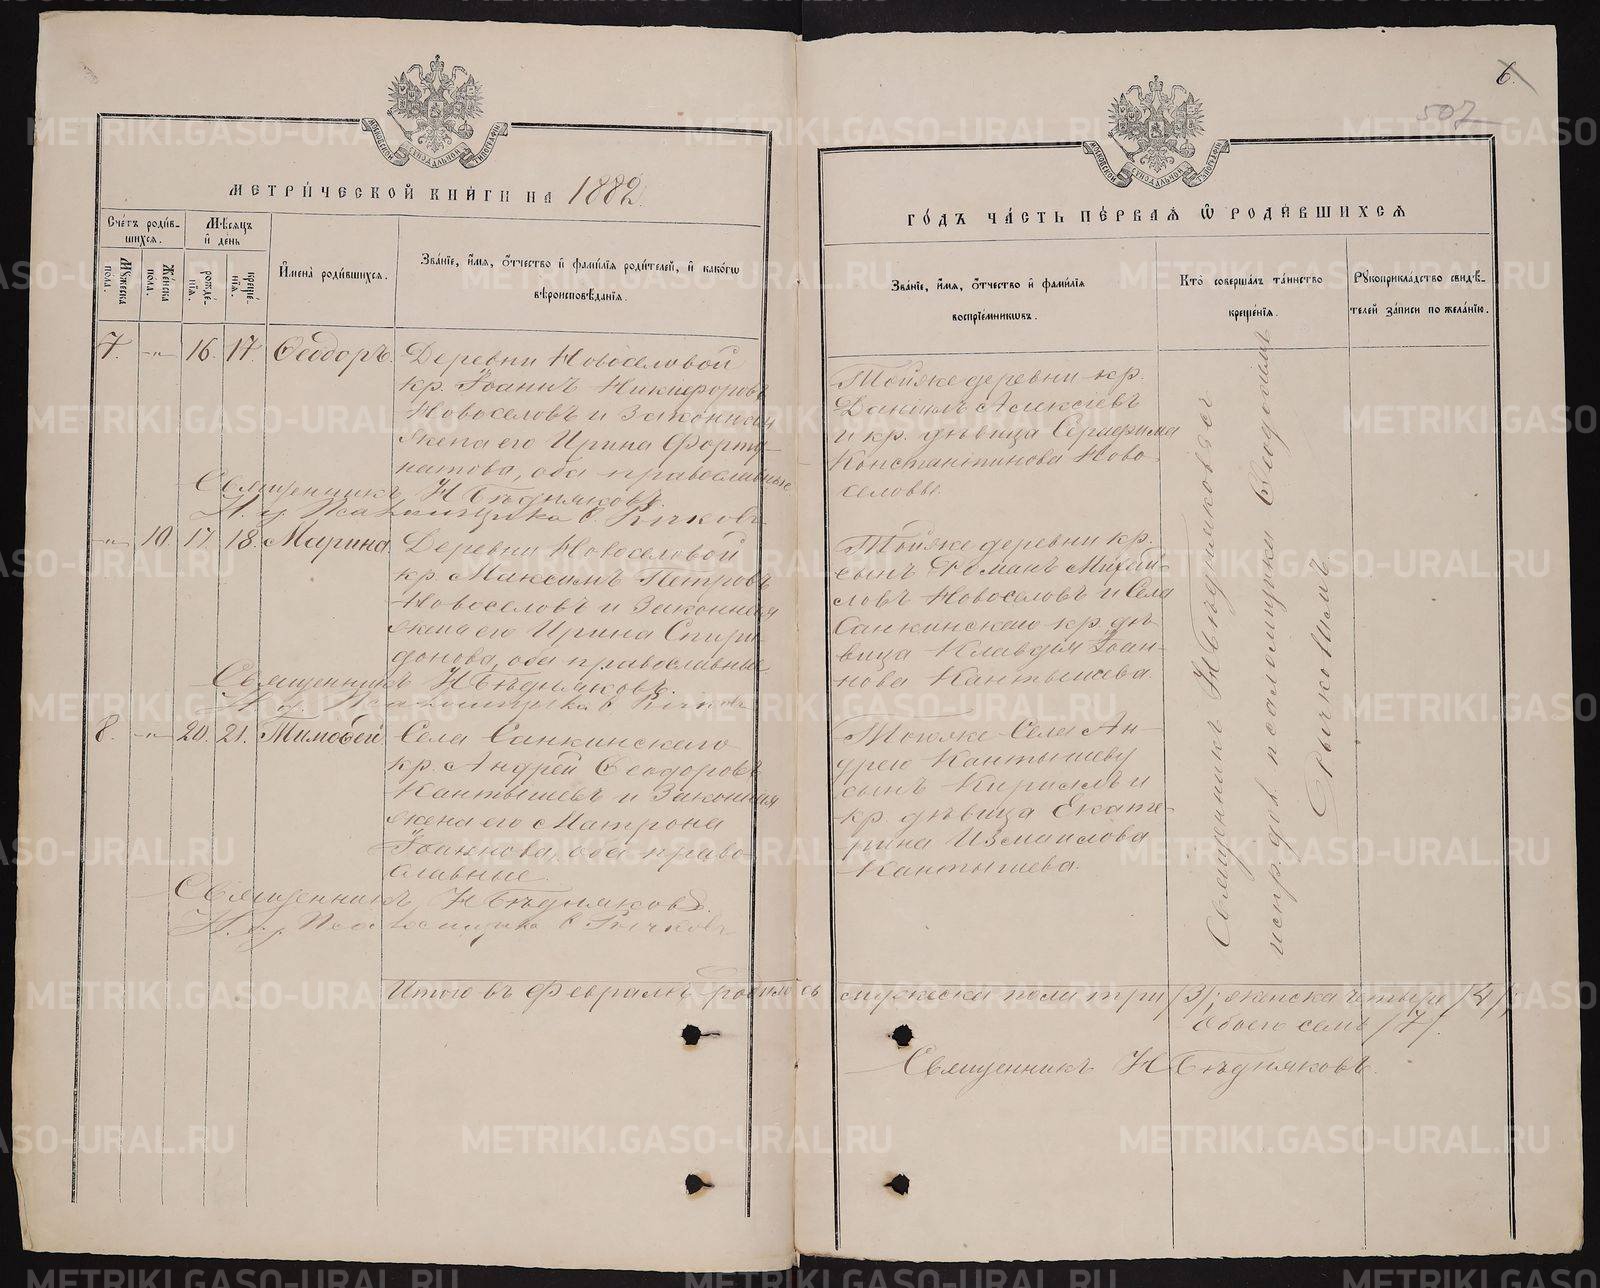 6.
507
МОСКОВСКОЙ СѴНОДАЛЬНОЙ ТИПОГРАФІИ
МЕТРИ́ЧЕСКОЙ КНИ́ГИ НА 1882
Сче́тъ роди́в-
шихся.
Мѣ́сяцъ
и҆ день
Мꙋ́жеска
по́ла.
Же́нска
по́ла.
рожде́-
нїѧ.
креще́-
нїѧ.
И҆мена̀ роди́вшихся.
Зва́нїе, и҆́мѧ, ѻ҆́тчество и҆ фами́лїѧ роди́телей, и҆ како́гѡ
вѣроисповѣ́данїѧ.
7. -"- 16. 17. Ѳеодоръ.
Деревни Новоселовой
кр. Іоаннъ Никифоровъ
Новоселовъ и законная
жена его Ирина Форту-
натова, оба православные
Священникъ Н Бѣдняковъ.
И. д. Псаломщика Ѳ. Рычковъ
-"- 10. 17. 18. Марина.
Деревни Новоселовой
кр. Максимъ Петровъ
Новоселовъ и законная
жена его Ирина Спири
донова, оба православные
Священникъ Н Бѣдняковъ.
И. д. Псаломщика Ѳ. Рычковъ
8. -"- 20. 21. Тимоѳей
Села Санкинскаго
кр. Андрей Ѳеодоровъ
Кантышевъ и законная
жена его Матрона
Іоаннова, оба право-
славные.
Священникъ Н Бѣдняковъ.
И. д. Псаломщика Ѳ Рычковъ
Итого въ Февралѣ родилось
МОСКОВСКОЙ СѴНОДАЛЬНОЙ ТИПОГРАФІИ
ГО́ДЪ ЧА́СТЬ ПЕ́РВАЯ Ѽ РОДИ́ВШИХСЯ
Зва́нїе, и҆́мѧ, ѻ҆́тчество и҆ фами́лїѧ
воспрїе́мникѡвъ.
Кто̀ соверша́лъ та́инство
креще́нїѧ.
Рꙋкоприкла́дство свидѣ́-
телей за́писи по жела́нїю.
Тойже деревни кр.
Даніилъ Алексѣевъ
и кр. дѣвица Серафима
Константинова Ново-
селовы.
Тойже деревни кр.
сынъ Романъ Михай-
ловъ Новоселовъ и Села
Санкинскаго кр. дѣ-
вица Клавдія Іоан-
нова Кантышева.
Тогоже Села Ан-
дрею Кантышеву
сынъ Кириллъ и
кр. дѣвица Екате-
рина Измаилова
Кантышева.
Священникъ Н Бѣдняковъ съ
испр. дол. псаломщика Ѳеодоромъ
Рычковымъ
мужеска пола три /3/; женска четыре /4/;
обоего семь /7/.
Священникъ Н Бѣдняковъ.
METRIKI.GASO-URAL.RU